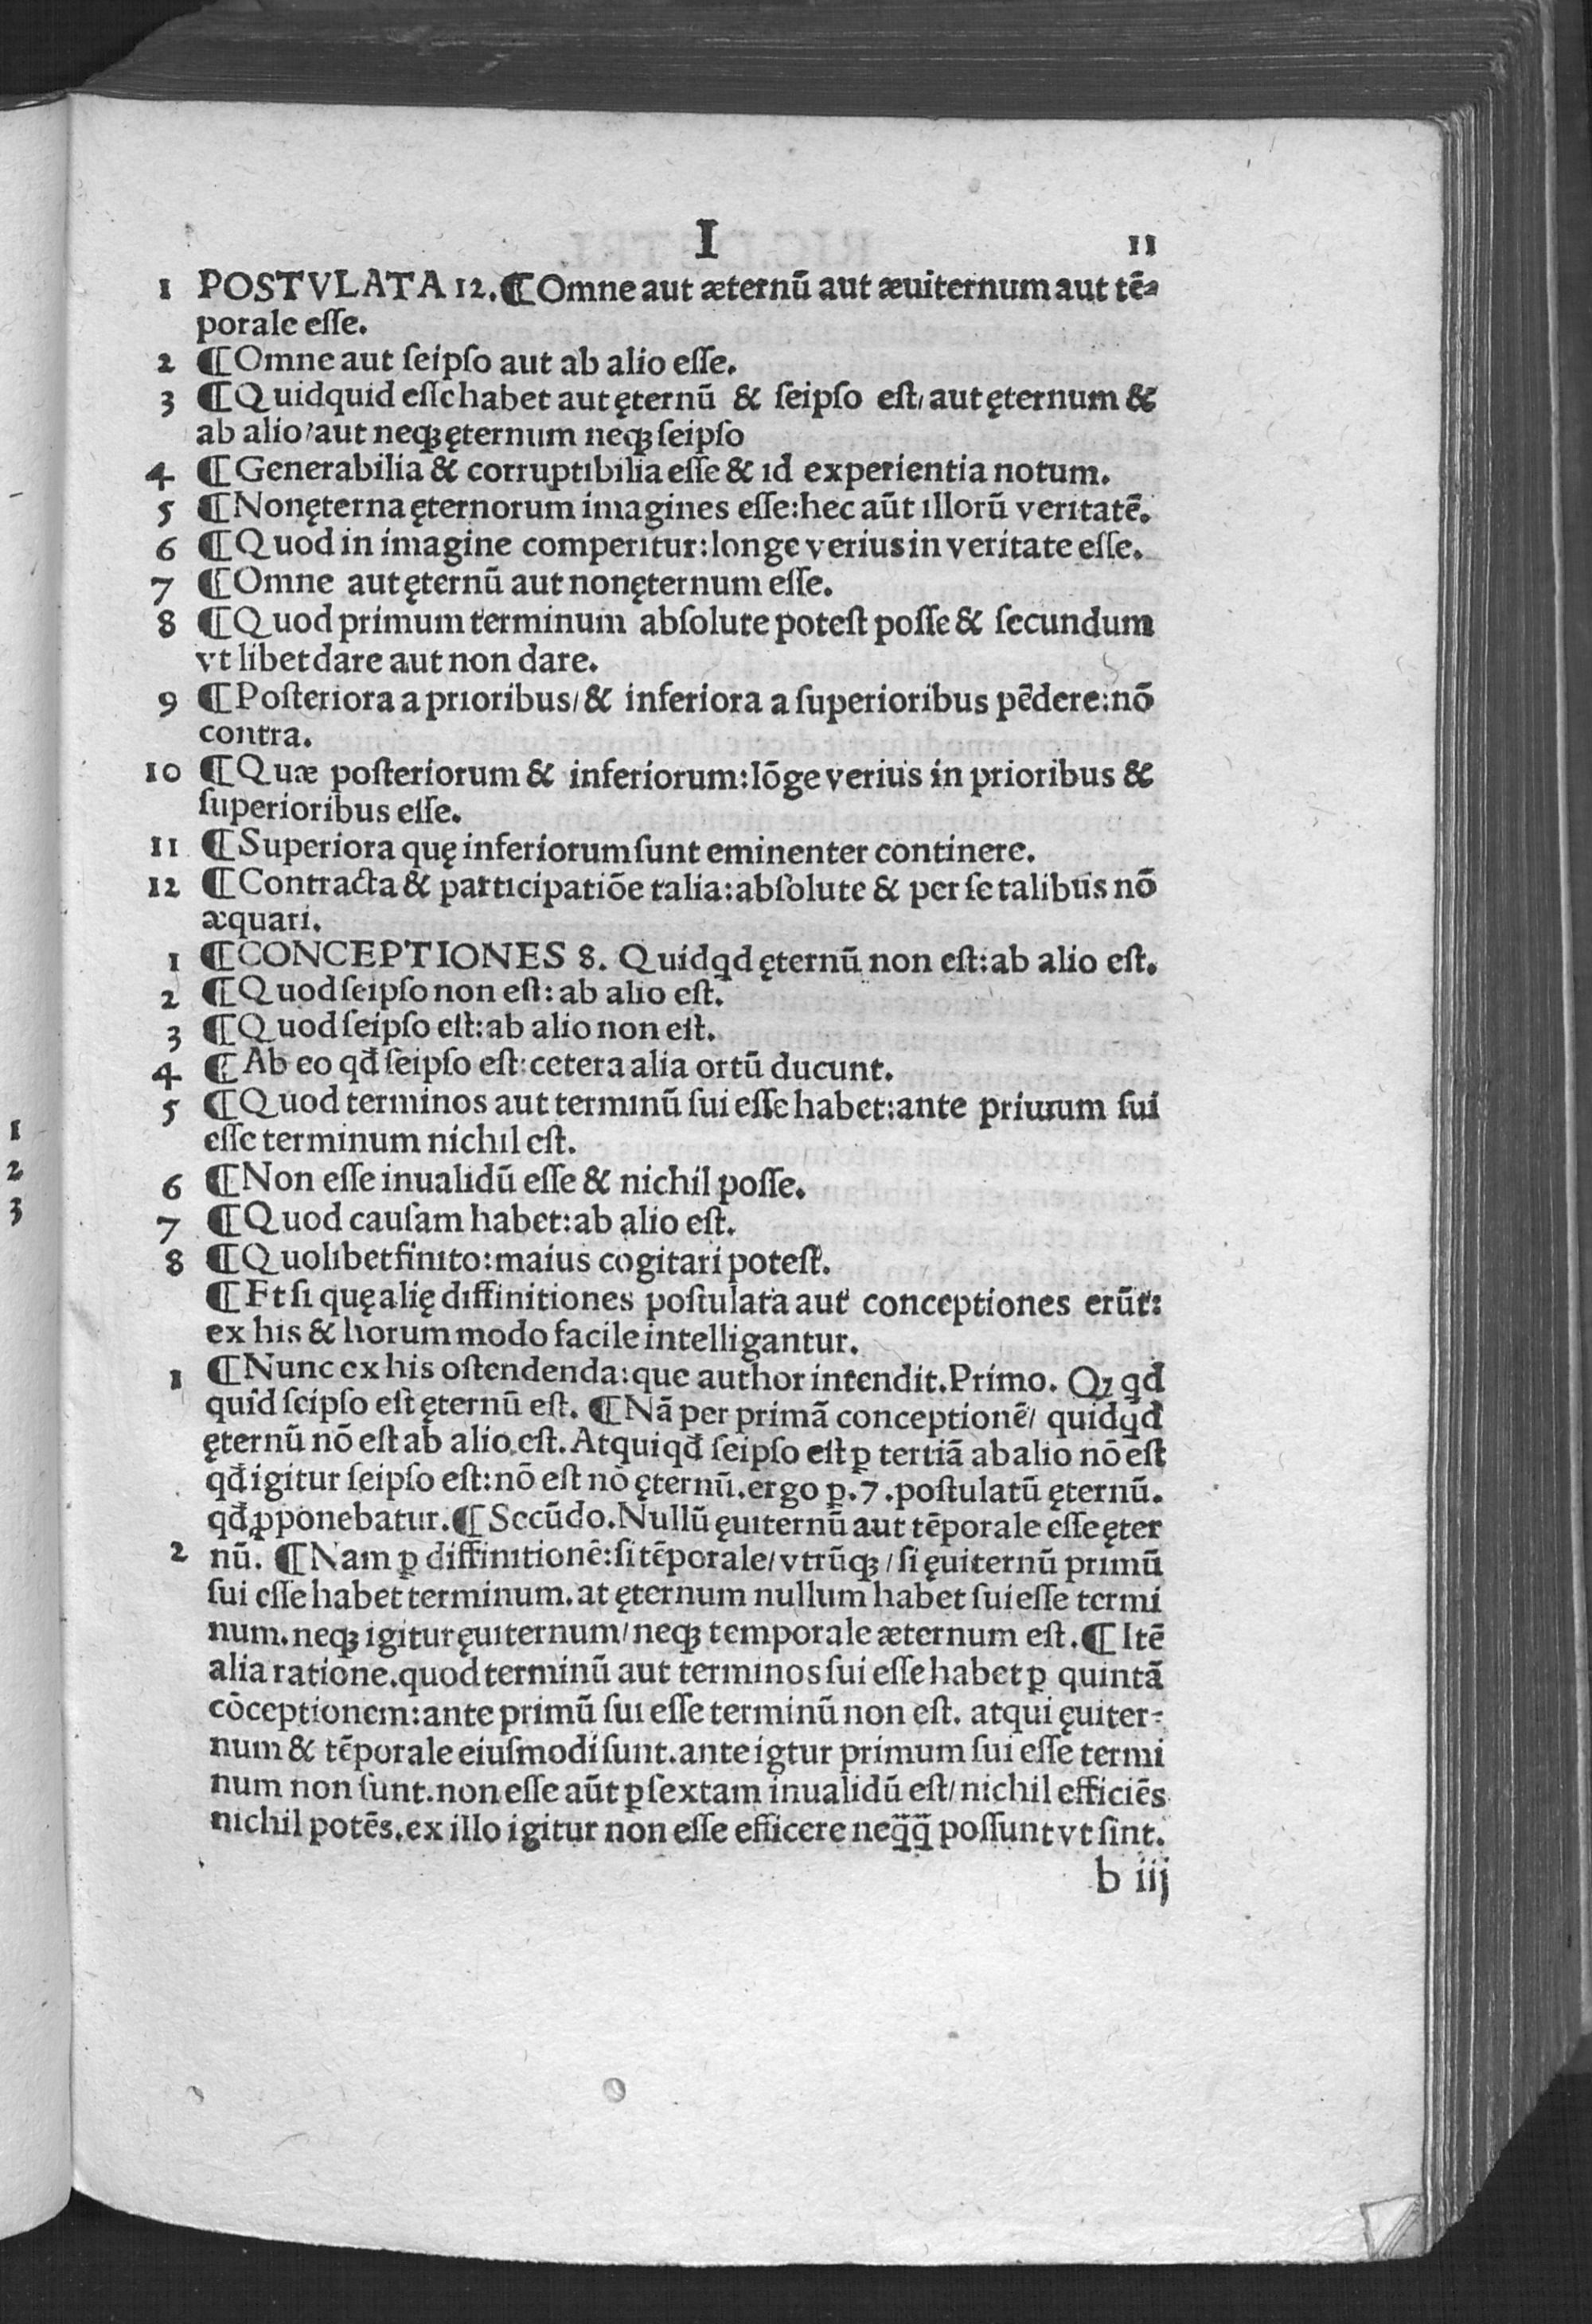 I 11
1 POSTVLATA 12. ¶ Omne aut æternū aut æuiternum aut tē⸗
porale esse.
2 ¶ Omne aut seipso aut ab alio esse.
3 ¶ Quidquid esse habet aut ęternū & seipso est/ aut ęternum &
ab alio/ aut neqꝫ ęternum neqꝫ seipso
4 ¶ Generabilia & corruptibilia esse & id experientia notum.
5 ¶ Non ęterna ęternorum imagines esse: hec aūt illorū veritatē.
6 ¶ Quod in imagine comperitur: longe verius in veritate esse.
7 ¶ Omne aut ęternū aut non ęternum esse.
8 ¶ Quod primum terminum absolute potest posse & secundum
vt libet dare aut non dare.
9 ¶ Posteriora a prioribus/ & inferiora a superioribus pēdere: nō
contra.
10 ¶ Quæ posteriorum & inferiorum: lōge verius in prioribus &
superioribus esse.
11 ¶ Superiora quę inferiorum sunt eminenter continere.
12 ¶ Contracta & participatiōe talia: absolute & per se talibus nō
æquari.
1 ¶ CONCEPTIONES 8. Quidqd ęternū non est: ab alio est.
2 ¶ Quod seipso non est: ab alio est.
3 ¶ Quod seipso est: ab alio non est.
4 ¶ Ab eo qđ seipso est: cetera alia ortū ducunt.
5 ¶ Quod terminos aut terminū sui esse habet: ante primum sui
esse terminum nichil est.
6 ¶ Non esse inualidū esse & nichil posse.
7 ¶ Quod causam habet: ab alio est.
8 ¶ Quolibet finito: maius cogitari potest.
¶ Et si quę alię diffinitiones postulata aut conceptiones erūt:
ex his & horum modo facile intelligantur.
1 ¶ Nunc ex his ostendenda: que author intendit. Primo. Qꝫ qd
quid seipso est ęternū est. ¶ Nā per primā conceptionē/ quidqd
ęternū nō est ab alio est. Atqui qđ seipso est ꝑ tertiā ab alio nō est
qđ igitur seipso est: nō est nō ęternū. ergo ꝑ. 7. postulatū ęternū.
qđ ꝓponebatur. ¶ Secūdo. Nullū ęuiternū aut tēporale esse ęter
2 nū. ¶ Nam ꝑ diffinitionē: si tēporale/ vtrūqꝫ/ si ęuiternū primū
sui esse habet terminum. at ęternum nullum habet sui esse termi
num. neqꝫ igitur ęuiternum/ neqꝫ temporale æternum est. ¶ Itē
alia ratione. quod terminū aut terminos sui esse habet ꝑ quintā
cōceptionem: ante primū sui esse terminū non est. atqui ęuiter⸗
num & tēporale eiusmodi sunt. ante igtur primum sui esse termi
num non sunt. non esse aūt ꝑ sextam inualidū est/ nichil efficiēs
nichil potēs. ex illo igitur non esse efficere neq̄q̄ possunt vt sint.
b iij
1
2
3